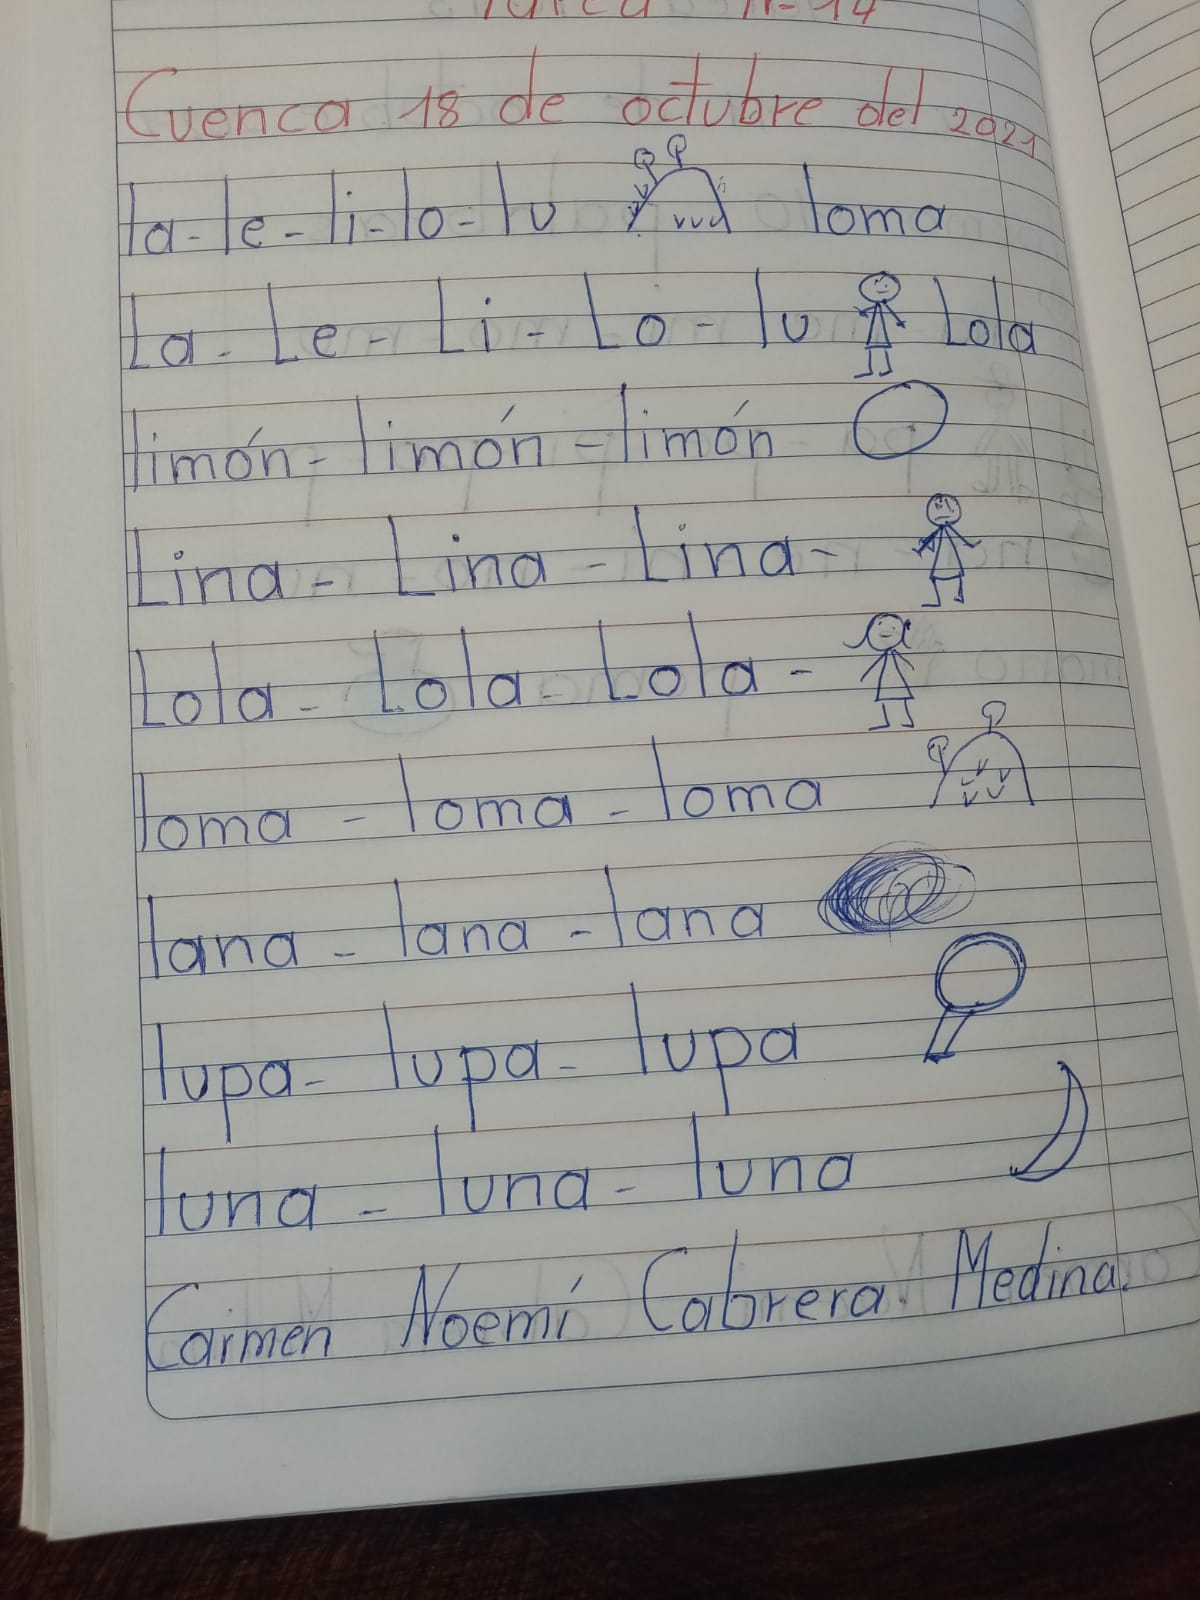 Tarea N-14
Cuenca 18 de octubre del 2021
la-le-li-lo-lu loma
La-Le-Li-Lo-lu Lola
limón-limón-limón
Lina-Lina-Lina-
Lola-Lola-Lola-
loma-loma-loma
lana-lana-lana
lupa-lupa-lupa
luna-luna-luna
Carmen Noemí Cabrera Medina.